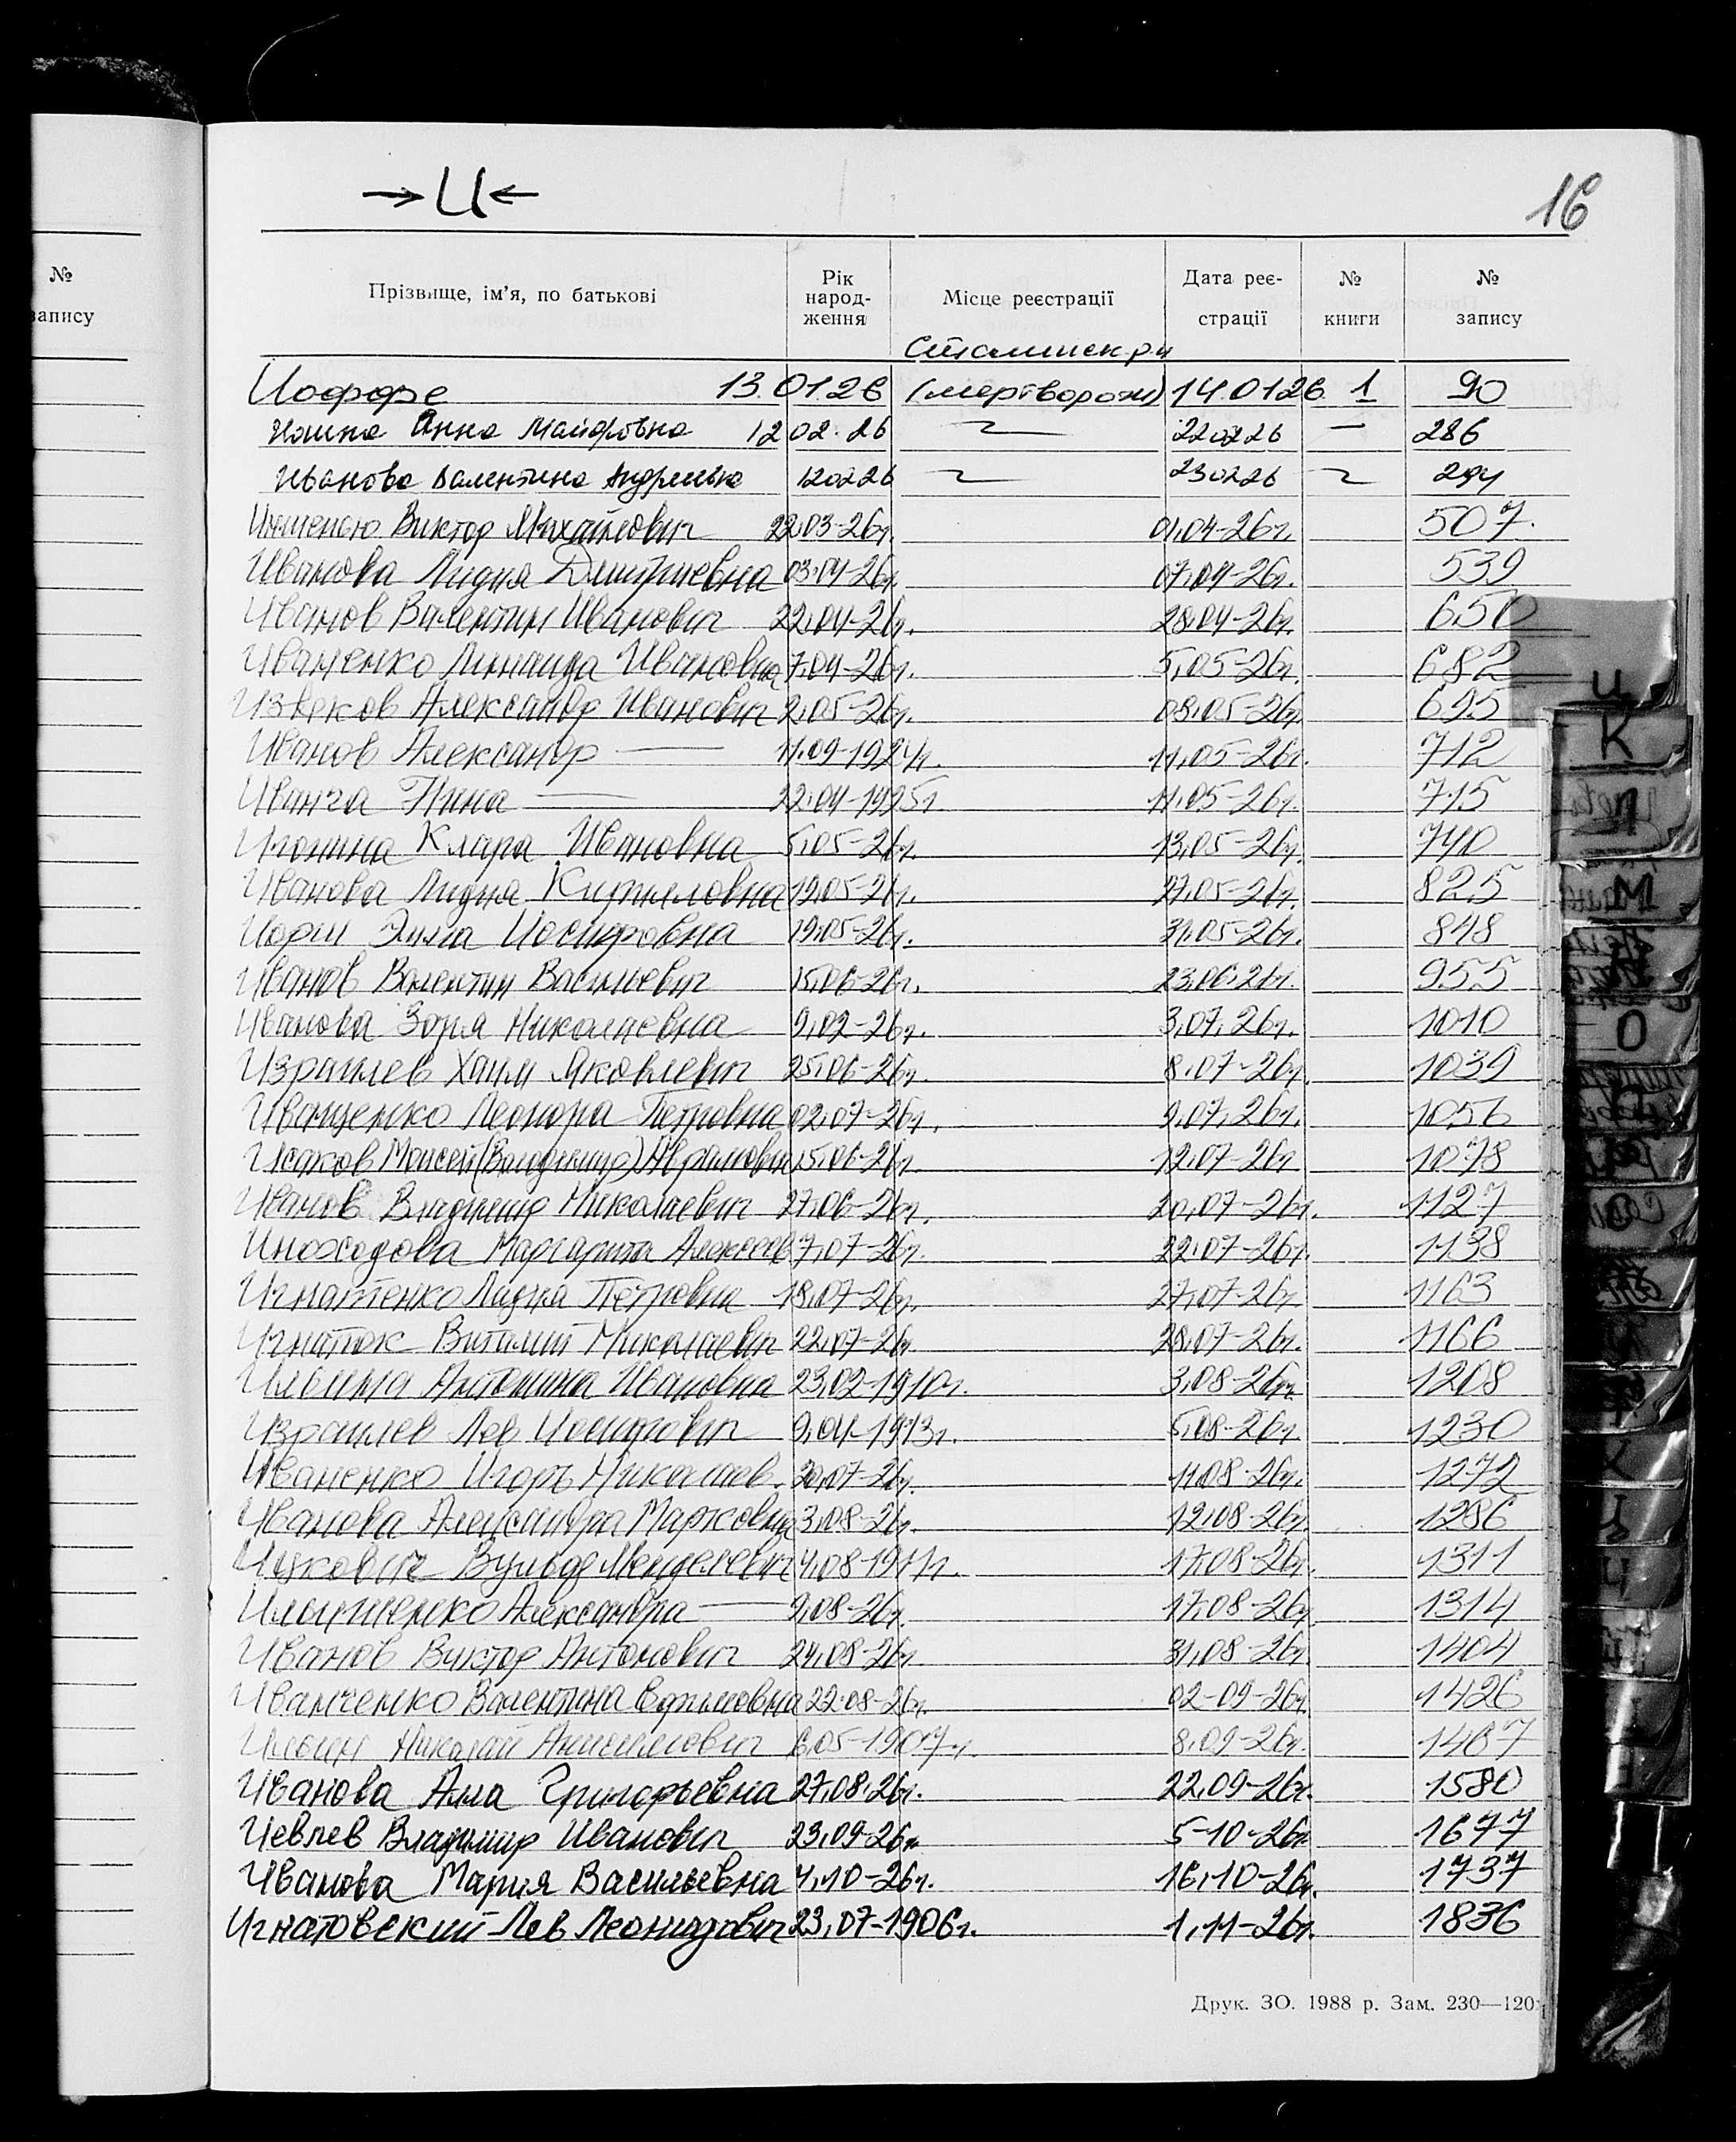 →И←
16
№
запису
Прізвище, ім'я, по батькові Рік народ- ження Місце реєстрації Дата реє- страції № книги № запису
Сталинск р-н
Иоффе 13.01.26 (мертворожд) 14.01.26 1 90
Анна 12 02.26 22.02.26 — 286
Иванова Валентина Андреевна 12.02.26 23.02.26 294
Виктор Михайлович 22.03-26г. 01.04-26г. 507.
Иванова Лидия Дмитриевна 03.04-26г. 07.04-26г. 539
Иванов Валентин Иванович 22.04-26г. 28.04-26г. 650
Иваненко Ивановна 7.04-26г. 5.05-26г. 682
Извеков Александр Иванович 2.05-26г. 08.05-26г. 695
Иванов Александр — 11.09-1924г. 11.05-26г. 712
Иванча Нина — 22.04-1925г. 11.05-26г. 715
Игонина Клара Ивановна 5.05-26г. 13.05-26г. 740
Иванова Лидия Кирилловна 19.05-26г. 27.05-26г. 825
Иориш Элла Иосифовна 19.05-26г. 31.05-26г. 848
Иванов Валентин Васильевич 15.06-26г. 23.06.26г. 955
Иванова Зоря Николаевна 9.02-26г. 3.07.26г. 1010
Израилев Хаим Яковлевич 25.06-26г. 8.07-26г. 1039
Иващенко Леонора Петровна 02.07-26г. 9.07.26г. 1056
Исаков Моисей (Владимир) Абрамович 15.06-26г. 12.07-26г. 1078
Иванов Владимир Николаевич 27.06-26г. 20.07-26г. 1127
Иноходова Маргарита Алексеев 7.07-26г. 22.07-26г. 1138
Игнатенко Лидия Петровна 18.07-26г. 27.07-26г. 1163
Игнаток Виталий Николаевич 22.07-26г. 28.07-26г. 1166
Ильина Антонина Ивановна 23.02-1910г. 3.08-26г. 1208
Израилев Лев Иосифович 9.04-1913г. 5.08-26г. 1230
Иваненко Игорь Николаев. 20.07-26г. 11.08-26г. 1272
Иванова Александра Марковна 3.08-26г. 12.08-26г. 1286
Ицкович Вульф Менделевич 4.08-1911г. 17.08-26г. 1311
Александра — 9.08-26г. 17.08-26г. 1314
Иванов Виктор Антонович 24.08-26г. 31.08-26г. 1404
Иванченко Валентина Ефимовна 22.08-26г. 02-09-26г. 1426
Ильин Николай Анисимович 6.05-1907г. 8.09-26г. 1467
Иванова Алла Григорьевна 27.08.26г. 22.09-26г. 1580
Иевлев Владимир Иванович 23.09-26г. 5-10-26г. 1677
Иванова Мария Васильевна 4.10-26г. 16.10-26г. 1737
Игнатовский Лев Леонидович 23.07-1906г. 1.11-26г. 1836
Друк. ЗО. 1988 р. Зам. 230—120
И
К
Л
М
О